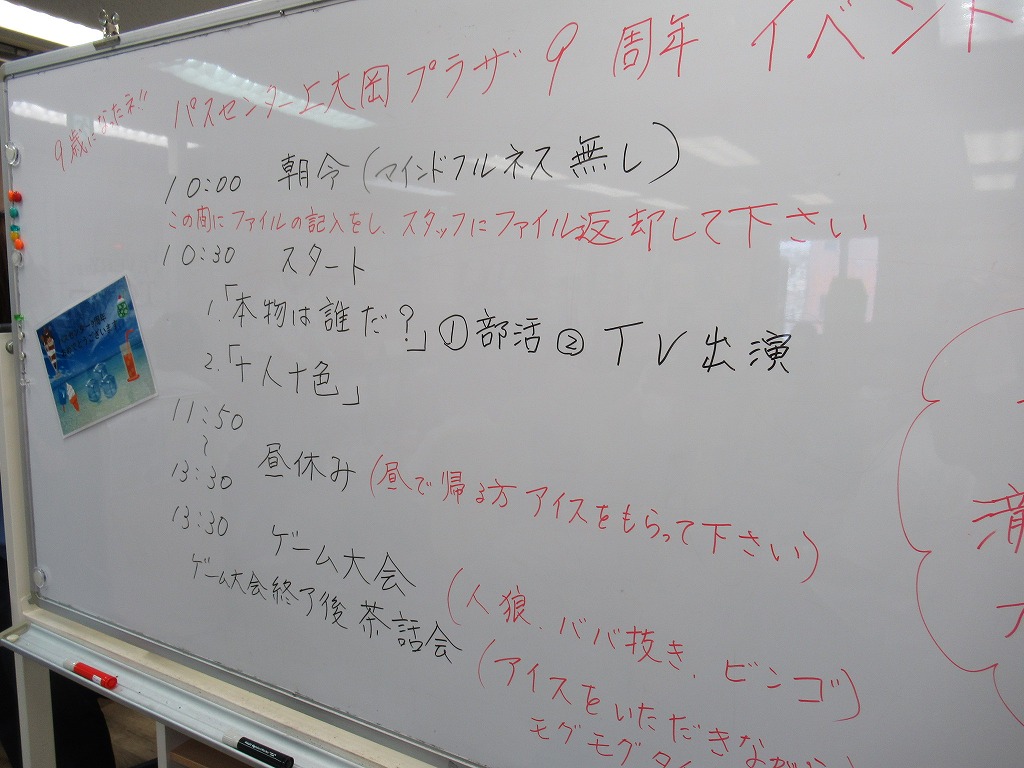 パスセンター上大岡プラザ 9周年 イベント
9歳になったネ!!
10:00 朝会(マインドフルネス無し)
この間にファイルの記入をし、スタッフにファイル返却して下さい
10:30 スタート
1.「本物は誰だ?」①部活 ② TV出演
2.「十人十色」
11:50
〜
13:30 昼休み (昼で帰る方 アイスをもらって下さい)
13:30 ゲーム大会 (人狼、ババ抜き、ビンゴ)
ゲーム大会終了後 茶話会 (アイスをいただきながら
モグモグタイ